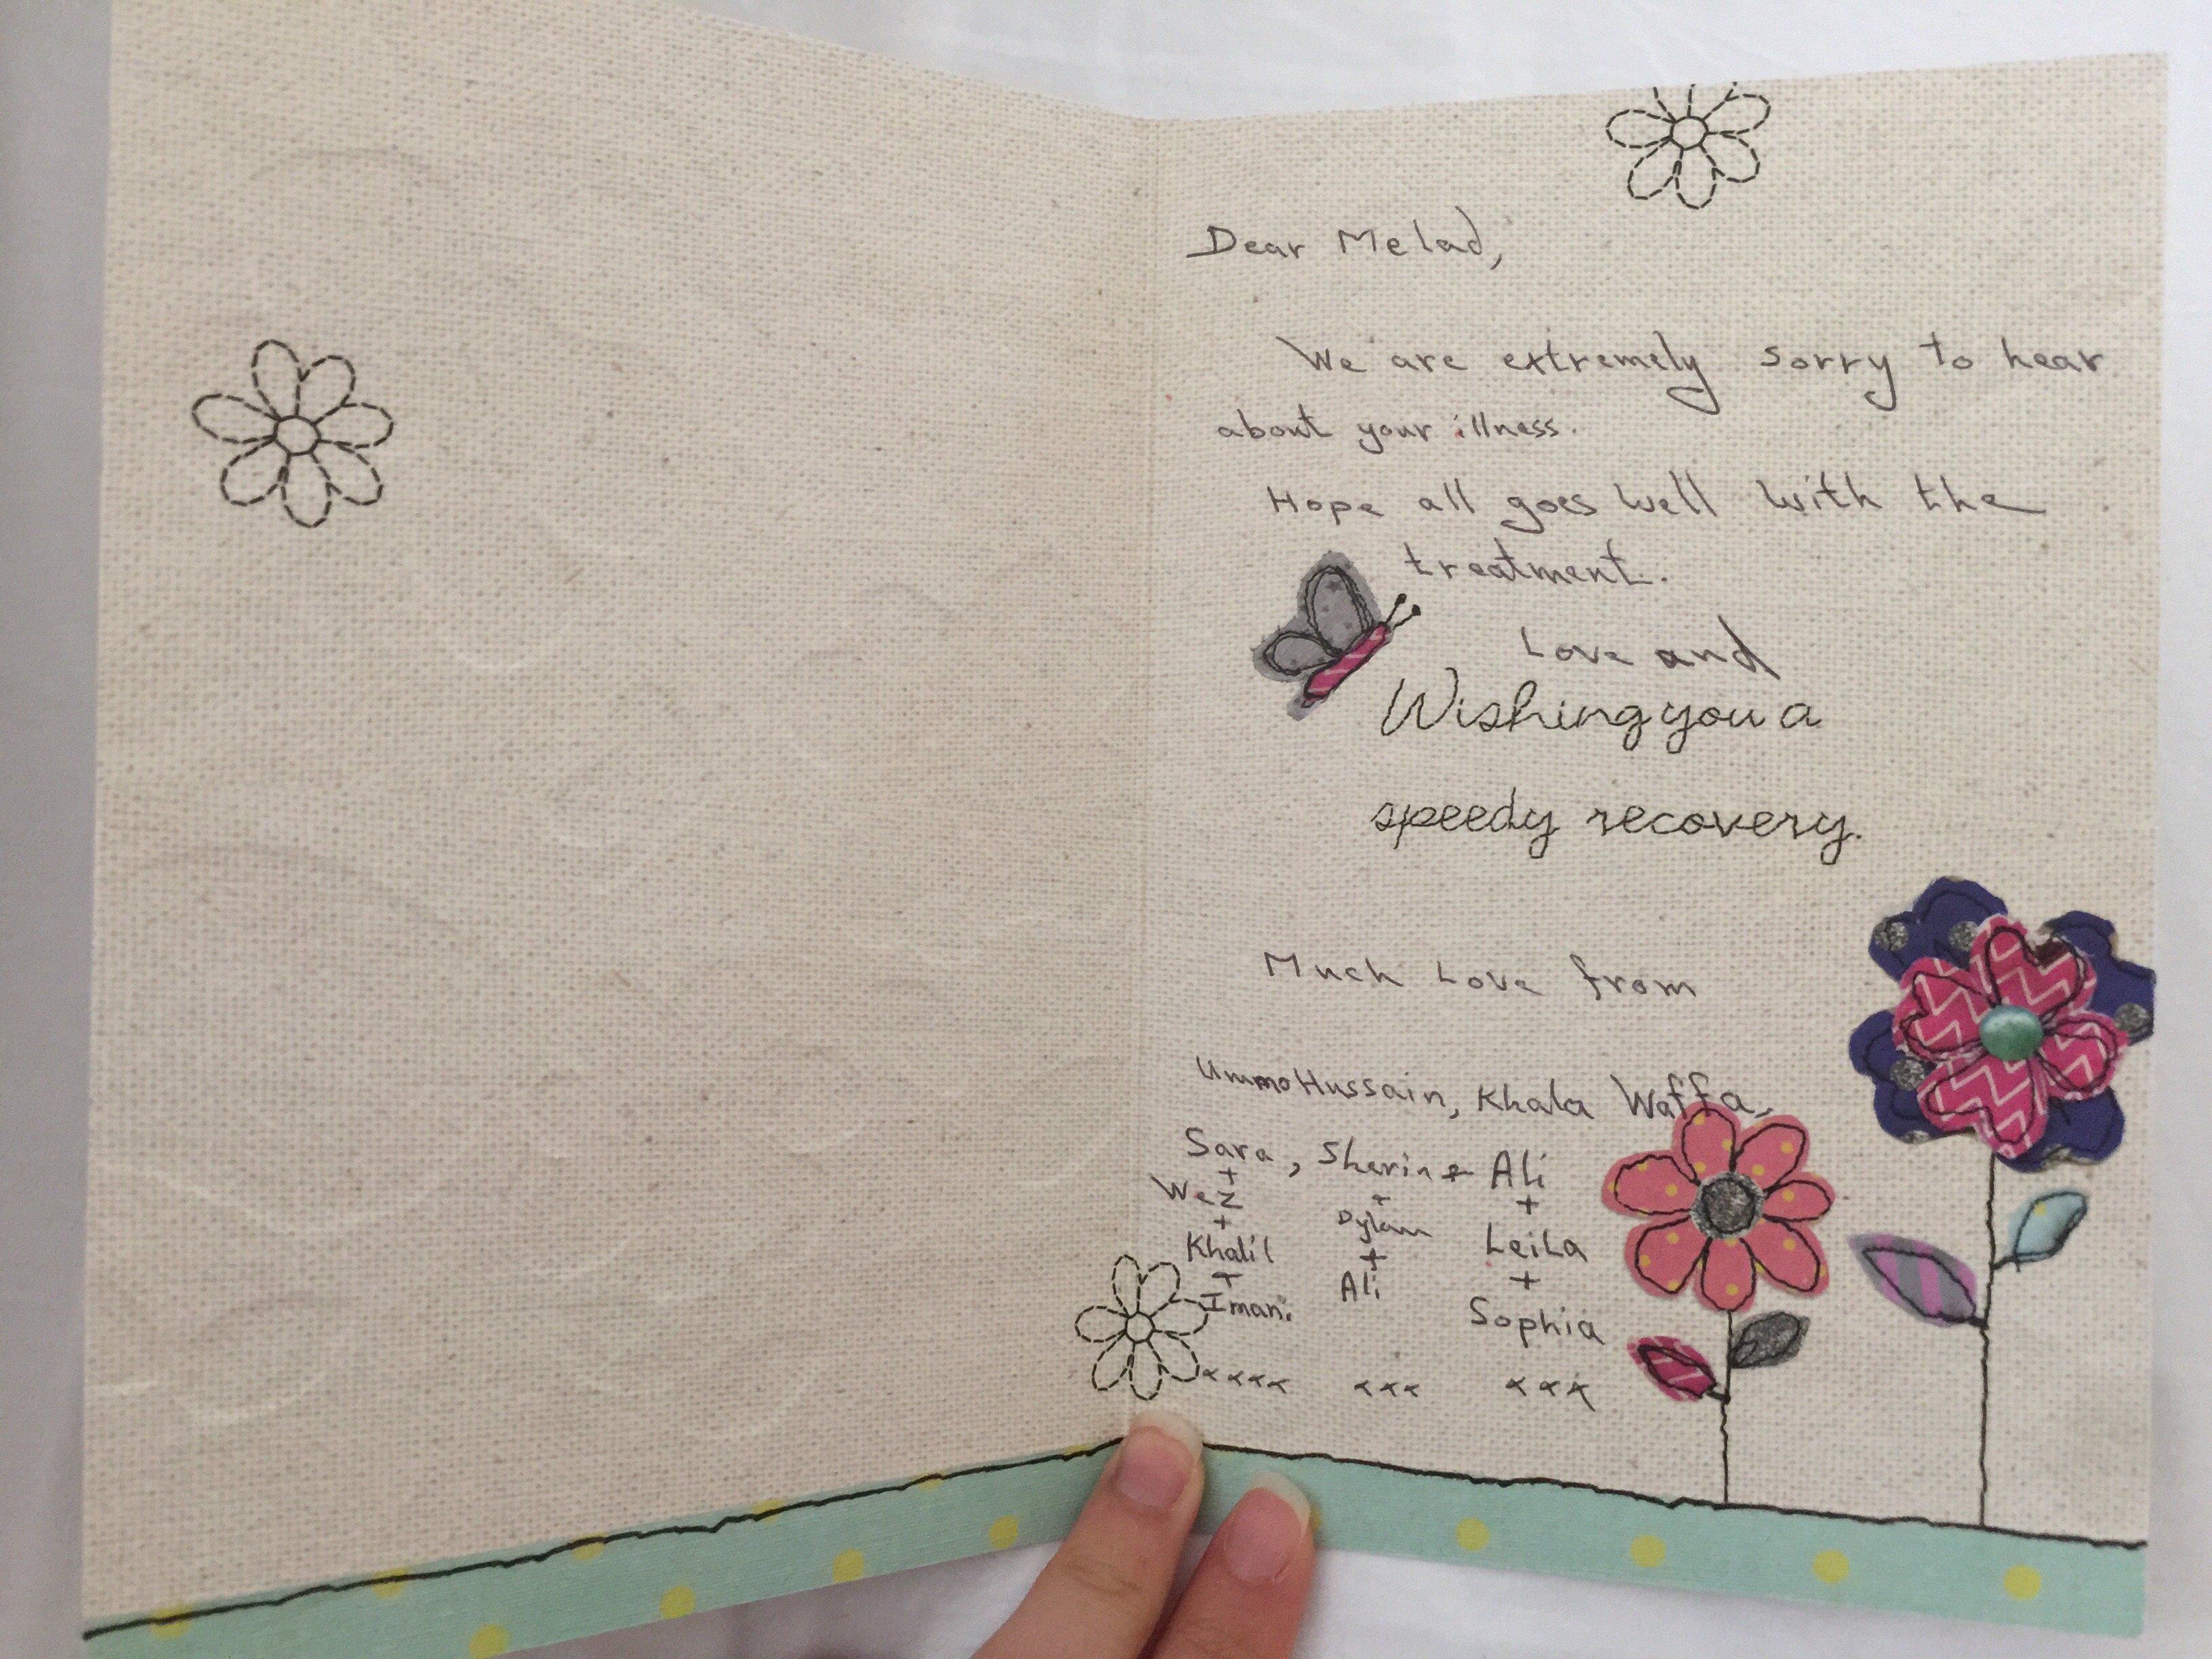 Dear Melad,
We are extremely sorry to hear
about your illness.
Hope all goes well with the
treatment.
Love and
Wishing you a
speedy recovery.
Much Love from
Ummo Hussain, Khala Waffa,
Sara, Sherin & Ali
+ + +
Wez Dylan Leila
+ + +
Khalil Ali Sophia
+
Iman.
xxxx xxx xxx